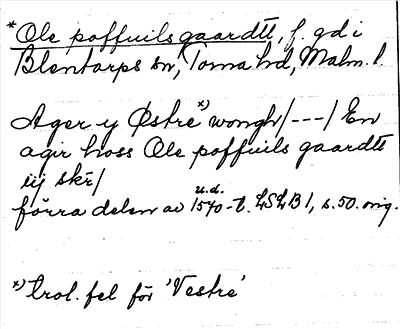 *Ole poffuils gaardtt, f. gd i
Blentarps sn, Torna hd, Malm. l.
Ager y Østre *) wongh/---/ En
agir hoss Ole poffuils gaardtt
iij skr/
u.d.
förra delen av 1570-t. LSLB 1, s. 50. orig.
*) trol. fel för 'Vestre'